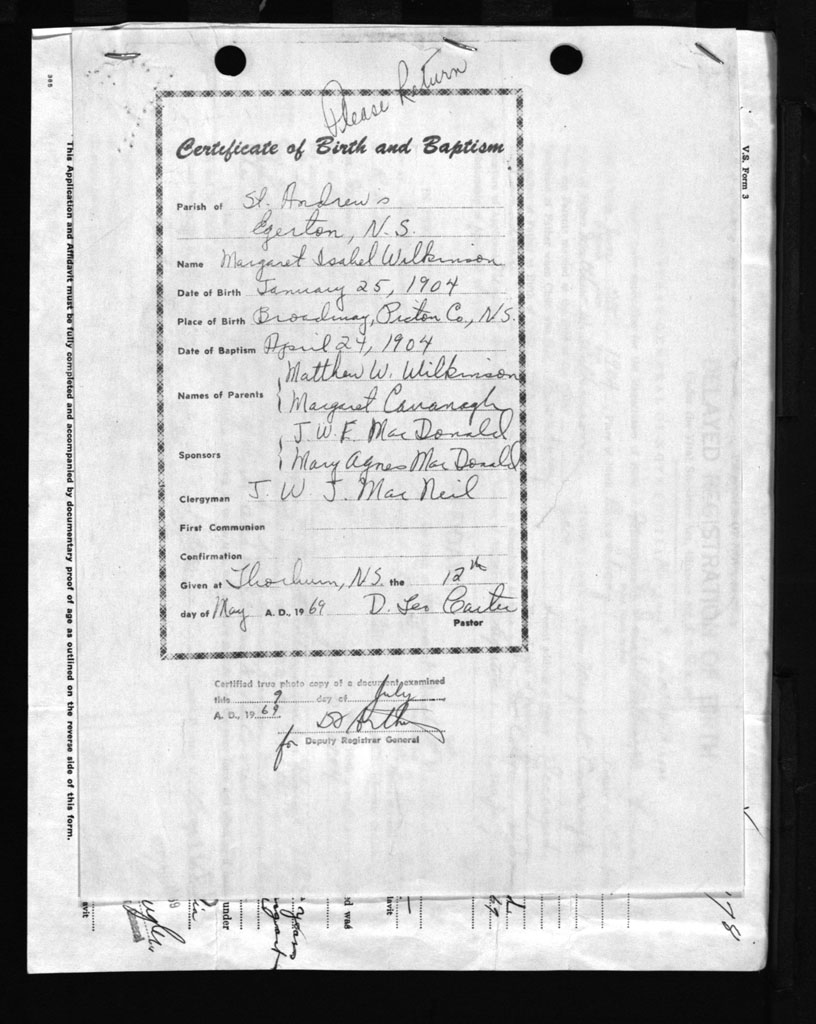 Please Return
Certificate of Birth and Baptism
Parish of St. Andrew's
Egerton, N.S.
Name Margaret Isabel Wilkinson
Date of Birth January 25, 1904
Place of Birth Broadway, Pictou Co., N.S.
Date of Baptism April 27, 1904
Matthew W. Wilkinson
Names of Parents { Margaret Cavanagh
J. W. F. MacDonald
Sponsors { Mary Agnes MacDonald
Clergyman J. W. J. MacNeil
First Communion
Confirmation
Given at Thorburn, N.S. the 12th
day of May A. D., 19 69 D. Leo Carter
Pastor
Certified true photo copy of a document examined
this 9 day of July
A. D., 19 69
for Deputy Registrar General
This Application and Affidavit must be fully completed and accompanied by documentary proof of age as outlined on the reverse side of this form.
V.S. Form 3
under